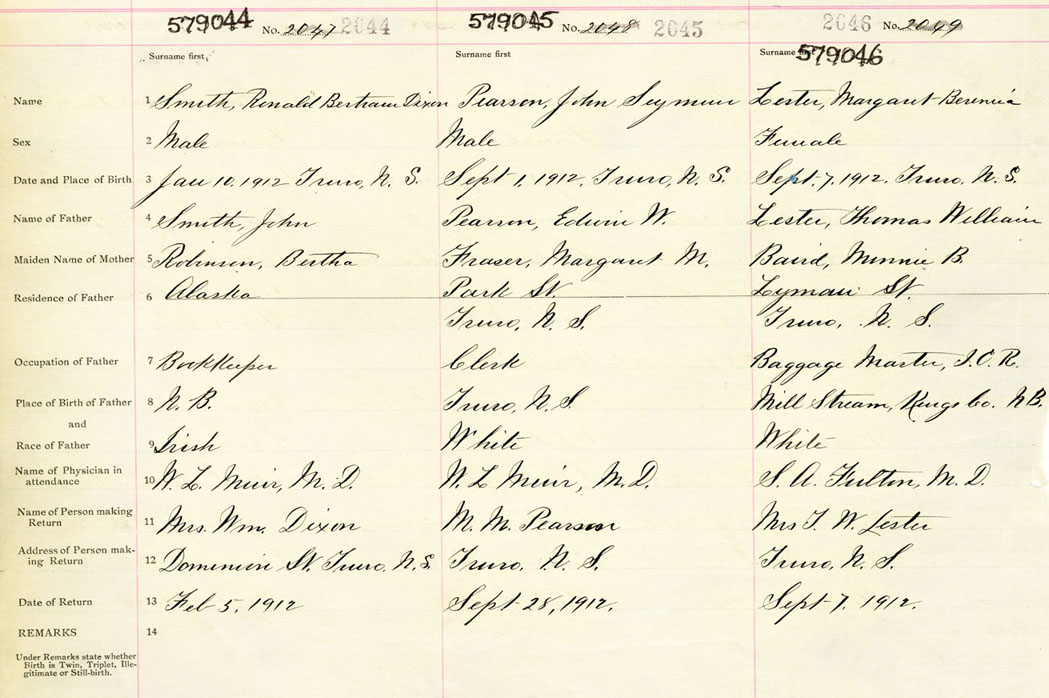 579044 No. 2047 2044 579045 No. 2048 2045 2046 No. 2049
Surname first Surname first Surname first 579046
Name 1 Smith, Ronald Bertram Dixon Pearson, John Seymour Lester, Margaret Berenice
Sex 2 Male Male Female
Date and Place of Birth 3 Jan 10, 1912 Truro, N. S. Sept 1, 1912, Truro, N. S. Sept. 7, 1912, Truro, N. S.
Name of Father 4 Smith, John Pearson, Edwin W. Lester, Thomas William
Maiden Name of Mother 5 Robinson, Bertha Fraser, Margaret M. Baird, Minnie B.
Residence of Father 6 Alaska Park St. Lyman St.
Truro, N. S. Truro, N. S.
Occupation of Father 7 Bookkeeper Clerk Baggage Master, I. C. R.
Place of Birth of Father 8 N. B. Truro, N. S. Mill Stream, Kings Co. N.B.
and
Race of Father 9 Irish White White
Name of Physician in
attendance 10 W. L. Muir, M. D. W. L Muir, M. D. S. A. Fulton, M. D.
Name of Person making
Return 11 Mrs. Wm. Dixon M. M. Pearson Mrs T. W. Lester
Address of Person mak-
ing Return 12 Dominion St. Truro. N. S. Truro, N. S. Truro, N. S.
Date of Return 13 Feb 5, 1912 Sept 28, 1912. Sept 7, 1912.
REMARKS 14
Under Remarks state whether
Birth is Twin, Triplet, Ille-
gitimate or Still-birth.